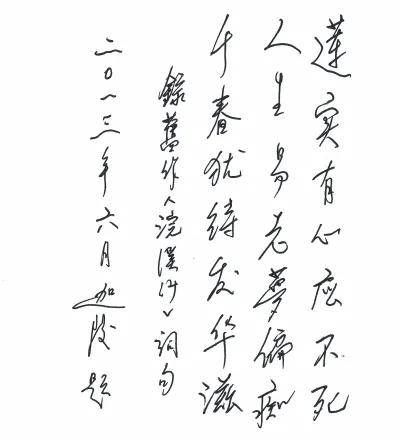 蓮实有心应不死
人生易老夢偏痴
千春犹待发华滋
錄舊作《浣溪沙》詞句
二〇一三年六月迦陵题